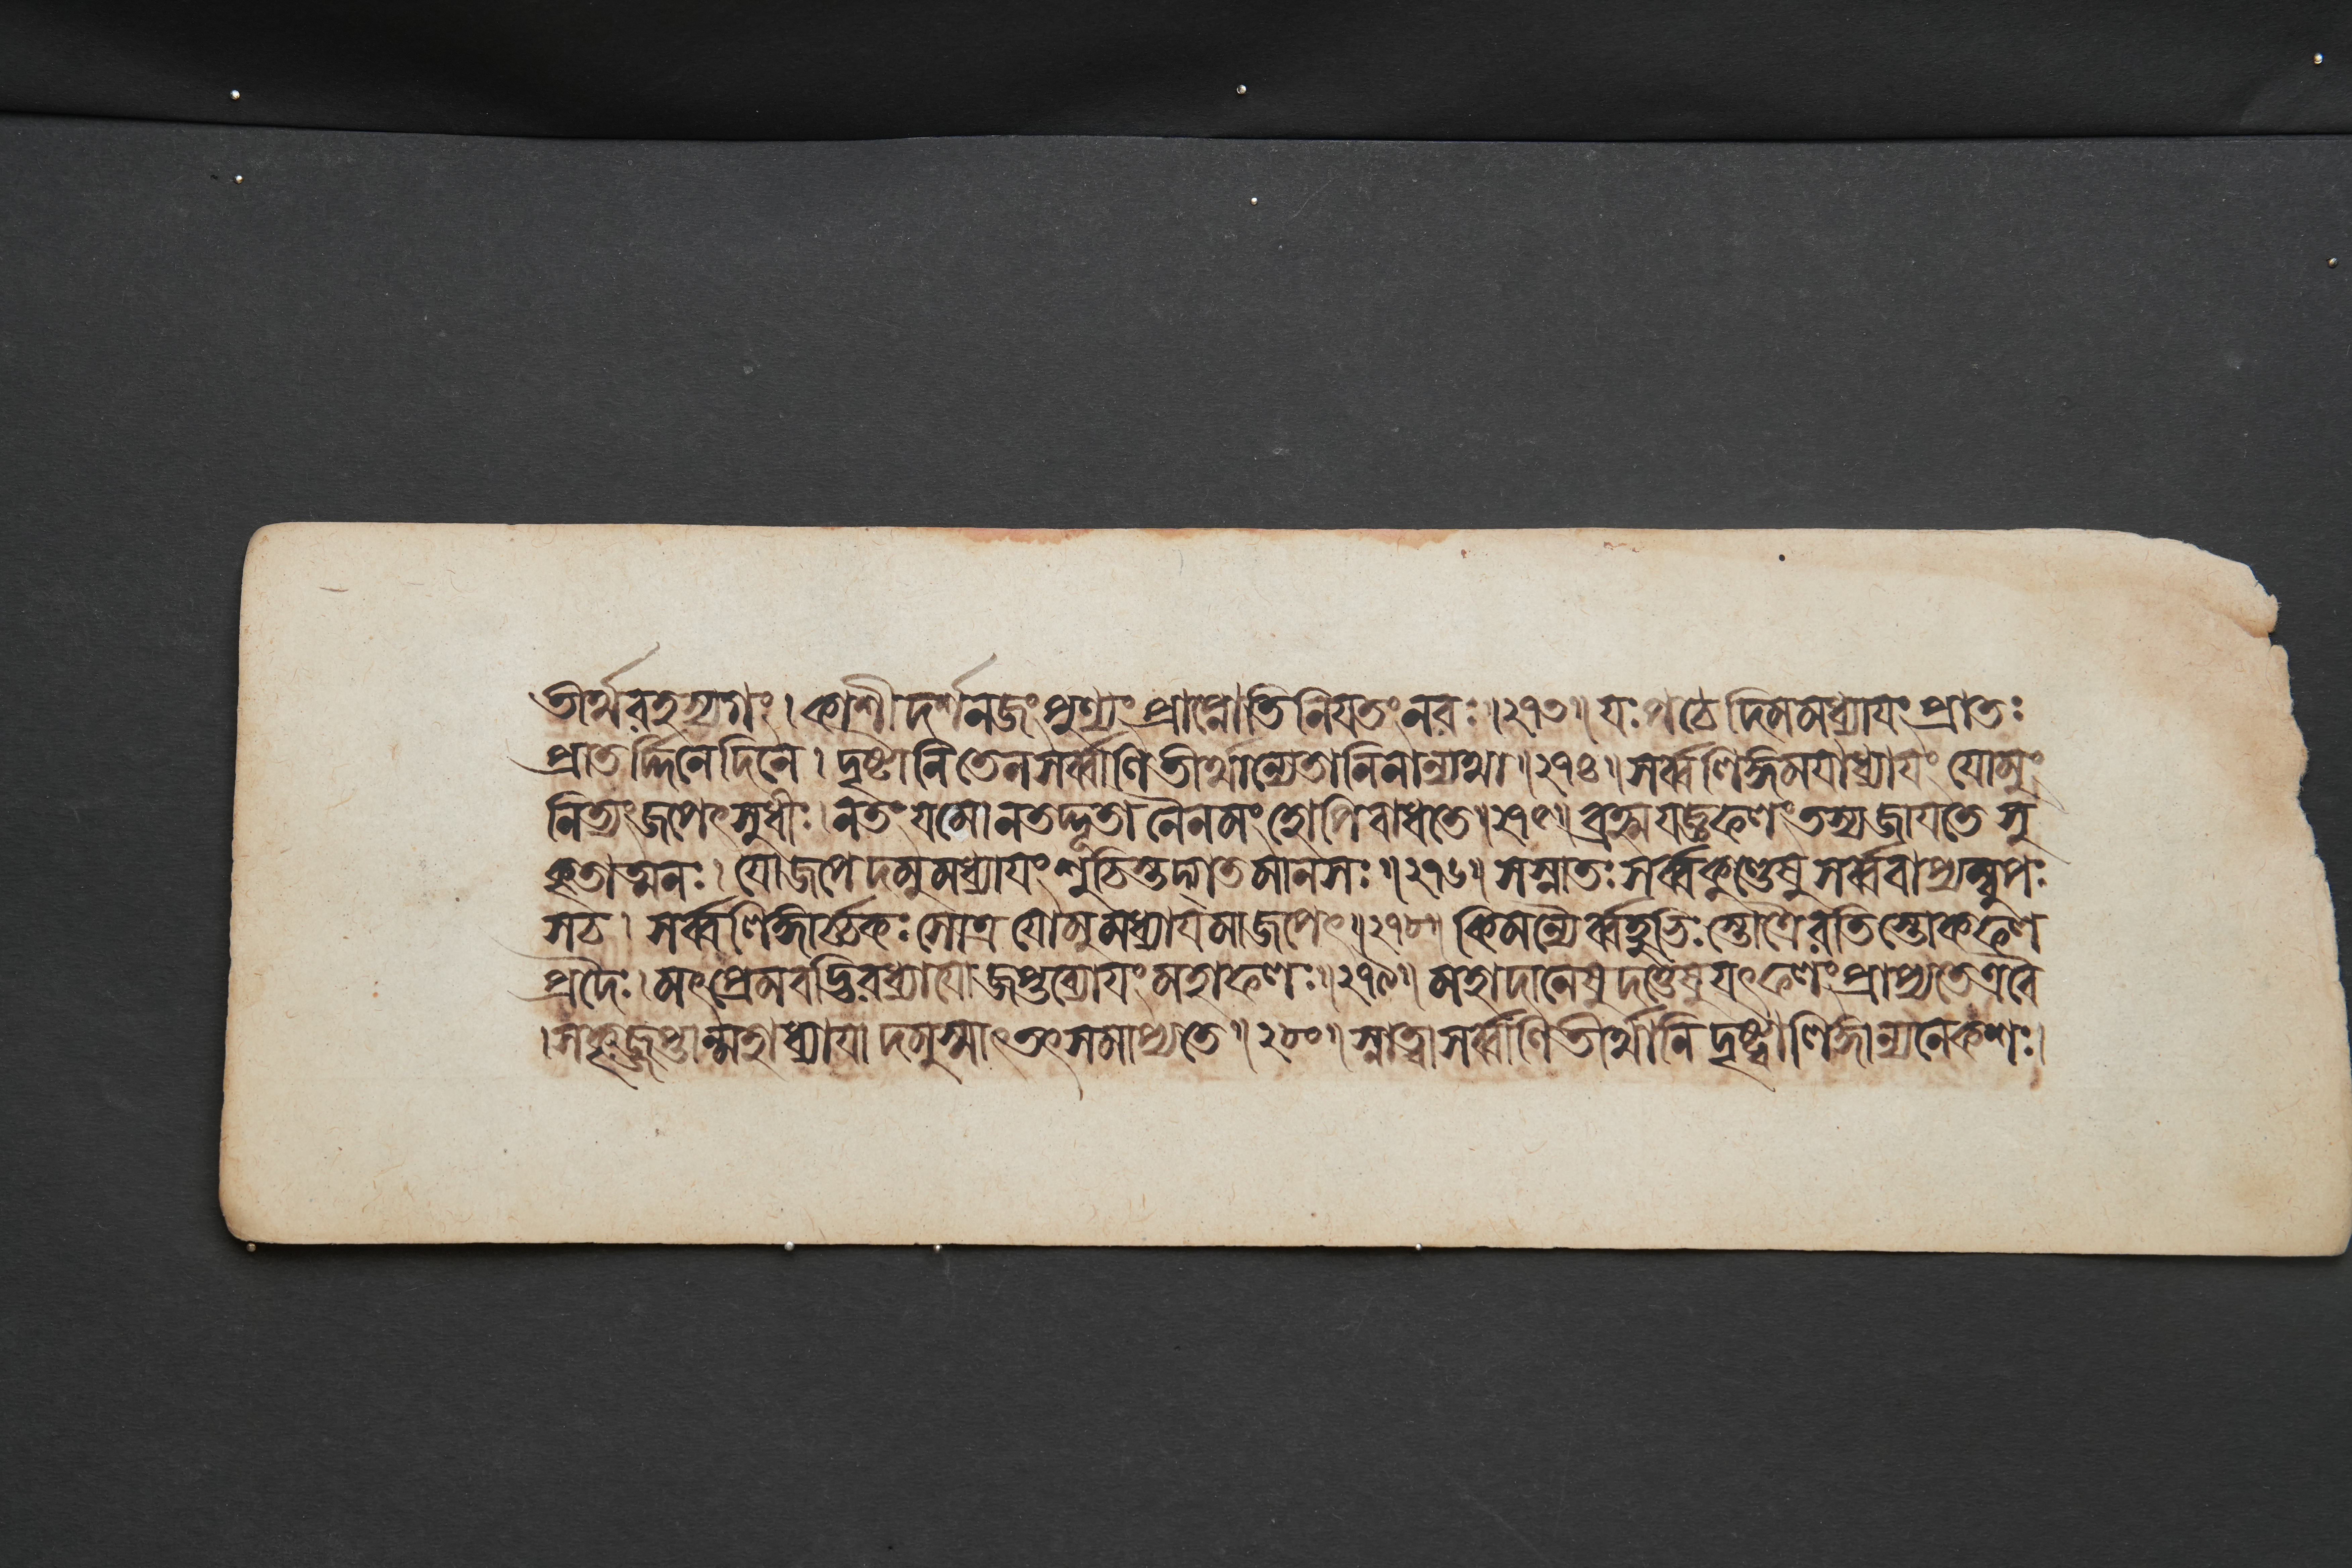 তীর্থরহস্যগং। কাশীদর্শনজং পুণ্যং প্রাপ্নোতি নিযতং নরঃ॥২৭৩॥ যঃ পঠেদিমমধ্যাযং প্রাতঃ
প্রাতর্দ্দিনেদিনে। দৃষ্টানি তেন সর্ব্বাণি তীর্থান্যেতানি নান্যথা॥২৭৪॥ সর্ব্বলিঙ্গমযাধ্যাযং যোমুং
নিত্যং জপেৎ সুধীঃ। নতং যমো নতদ্দূতা নৈনমংহোপি বাধতে॥২৭৫॥ ব্রহ্মযজ্ঞফলং তস্য জাযতে সু
কৃতাত্মনঃ। যো জপেদমুমধ্যাযং শুচিস্তদ্গতমানসঃ॥২৭৬॥ স স্নাতঃ সর্ব্বকুণ্ডেষু সর্ব্ববাপ্যম্বুপঃ
স চ। সর্ব্বলিঙ্গার্চ্চকঃ সোত্র যোমুমধ্যাযমাজপেৎ॥২৭৮॥ কিমন্যৈর্ব্বহুভিঃ স্তোত্রৈরতিস্তোকফল
প্রদৈঃ। মৎপ্রেমবদ্ভিরধ্যাযো জপ্তব্যোযং মহাফলঃ॥২৭৯॥ মহাদানেষু দত্তেষু যৎফলং প্রাপ্যতেত্র বৈ
। সকৃজ্জপ্তান্মহাধ্যাযাদমুষ্মাৎ তৎ সমাপ্যতে॥২৮০॥ স্নাত্বা সর্ব্বাণি তীর্থানি দৃষ্ট্বা লিঙ্গান্যনেকশঃ।